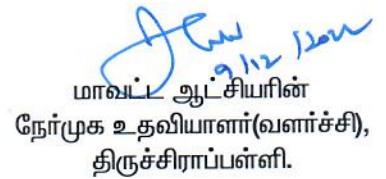 9/12/2022
மாவட்ட ஆட்சியரின்
நேர்முக உதவியாளர்(வளர்ச்சி),
திருச்சிராப்பள்ளி.